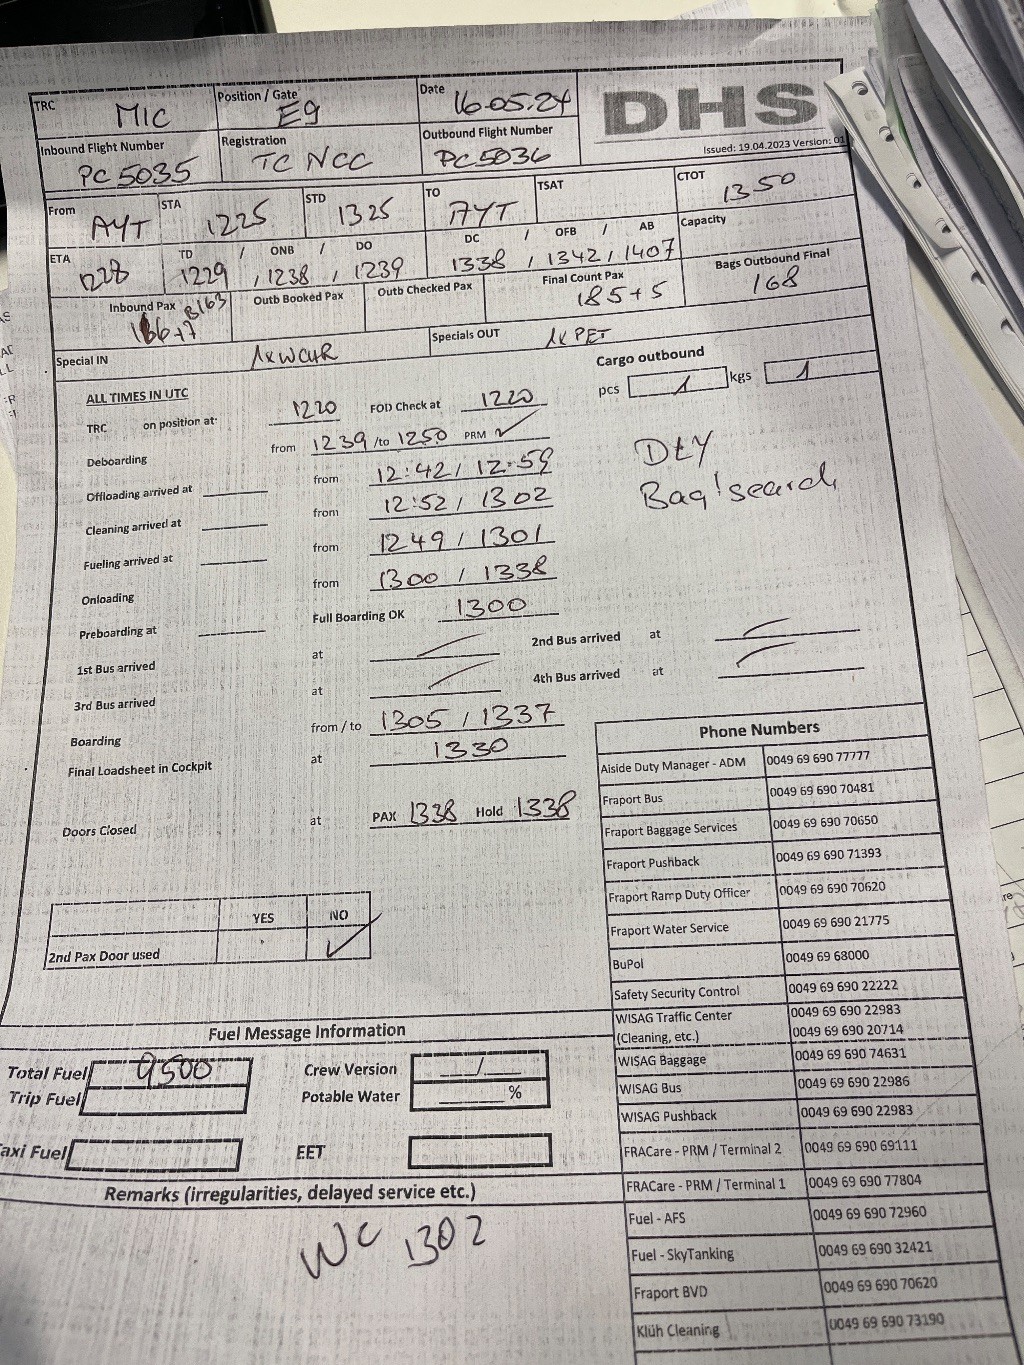 TRC MIC Position / Gate E9 Date 16.05.24 DHS
Issued: 19.04.2023 Version: 01
Inbound Flight Number PC 5035 Registration TC NCC Outbound Flight Number PC 5036
From AYT STA 1225 STD 1325 TO AYT TSAT CTOT 1350
ETA 1228 TD / ONB / DO 1229 , 1238 , 1239 DC / OFB / AB 1338 , 1342 , 1407 Capacity
Inbound Pax 166+7 B163 Outb Booked Pax Outb Checked Pax Final Count Pax 185+5 Bags Outbound Final 168
Special IN 1xWCHR Specials OUT 1x PET
Cargo outbound
pcs 1 kgs 1
ALL TIMES IN UTC
TRC on position at: 1220 FOD Check at 1220
Deboarding from 1239 /to 1250 PRM ✓
Offloading arrived at from 12:42 / 12:59
Cleaning arrived at from 12:52 / 1302
Fueling arrived at from 1249 / 1301
Onloading from 1300 / 1338
Preboarding at Full Boarding OK 1300
DLY
Bag search
1st Bus arrived at 2nd Bus arrived at
3rd Bus arrived at 4th Bus arrived at
Boarding from / to 1305 / 1337
Final Loadsheet in Cockpit at 1330
Doors Closed at PAX 1338 Hold 1338
YES NO
2nd Pax Door used ✓
Fuel Message Information
Total Fuel 9500 Crew Version /
Trip Fuel Potable Water %
axi Fuel EET
Remarks (irregularities, delayed service etc.)
WC 1302
Phone Numbers
Aiside Duty Manager - ADM 0049 69 690 77777
Fraport Bus 0049 69 690 70481
Fraport Baggage Services 0049 69 690 70650
Fraport Pushback 0049 69 690 71393
Fraport Ramp Duty Officer 0049 69 690 70620
Fraport Water Service 0049 69 690 21775
BuPol 0049 69 68000
Safety Security Control 0049 69 690 22222
WISAG Traffic Center 0049 69 690 22983
(Cleaning, etc.) 0049 69 690 20714
WISAG Baggage 0049 69 690 74631
WISAG Bus 0049 69 690 22986
WISAG Pushback 0049 69 690 22983
FRACare - PRM / Terminal 2 0049 69 690 69111
FRACare - PRM / Terminal 1 0049 69 690 77804
Fuel - AFS 0049 69 690 72960
Fuel - SkyTanking 0049 69 690 32421
Fraport BVD 0049 69 690 70620
Klüh Cleaning 0049 69 690 73190